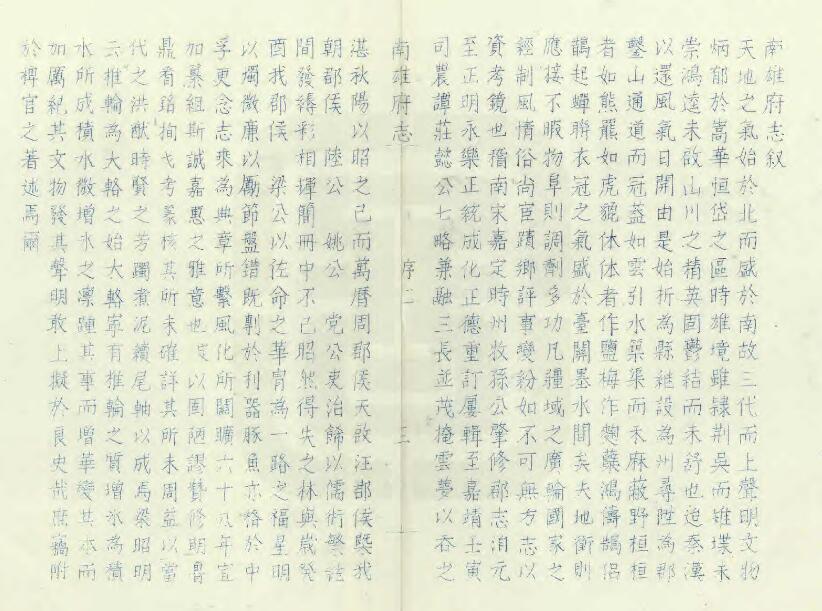 南雄府志叙
天地之氣始於北而盛於南故三代而上聲明文物
炳郁於嵩華恒岱之區時雄境雖隸荆吳而雉堞未
崇鴻遠未啟山川之精英固鬱結而未舒也迨秦漢
以還風氣日開由是始折為縣継設為州尋陞為郡
鑿山通道而冠蓋如雲引水築渠而禾麻蔽野桓桓
者如熊羆如虎貔休休者作鹽梅作麴糱鴻儔鵠侣
鵲起蟬聨衣冠之氣盛於臺閣墨水間矣夫地衝則
應接不暇物阜則調劑多功凡疆域之廣輪國家之
經制風情俗尚宦蹟鄉評事變紛如不可無方志以
資考鏡也稽南宋嘉定時州牧孫公肇修郡志洎元
至正明永樂正統成化正德重訂屢輯至嘉靖壬寅
司農譚莊懿公七略兼融三長並茂掩雲夢以吞之
南雄府志
序二
三
湛秋陽以昭之已而萬曆周郡侯天啟汪郡侯曁我
朝郡侯 陸公 姚公 党公吏治餙以儒術繁詮
間發縟彩相揮簡冊中不已昭然得失之林與歲癸
酉我郡侯 梁公以佐命之華胄為一路之福星明
以燭微廉以勵節盤錯既剸於利器豚魚亦格於中
孚更念志乘為典章所繫風化所關曠六十八年宜
加纂組斯誠嘉惠之雅意也 以固陋謬贊修明魯
鼎看銘掏戈考篆核其所未確詳其所未周益以當
代之洪猷時賢之芳躅煮泥續尾軸以成焉梁昭明
云推輪為大輅之始大輅寧有推輪之質增冰為積
水所成積水微增氷之凛踵其事而增華變其本而
加厲紀其文物發其聲明敢上擬於良史哉庶竊附
於稗官之著述焉爾